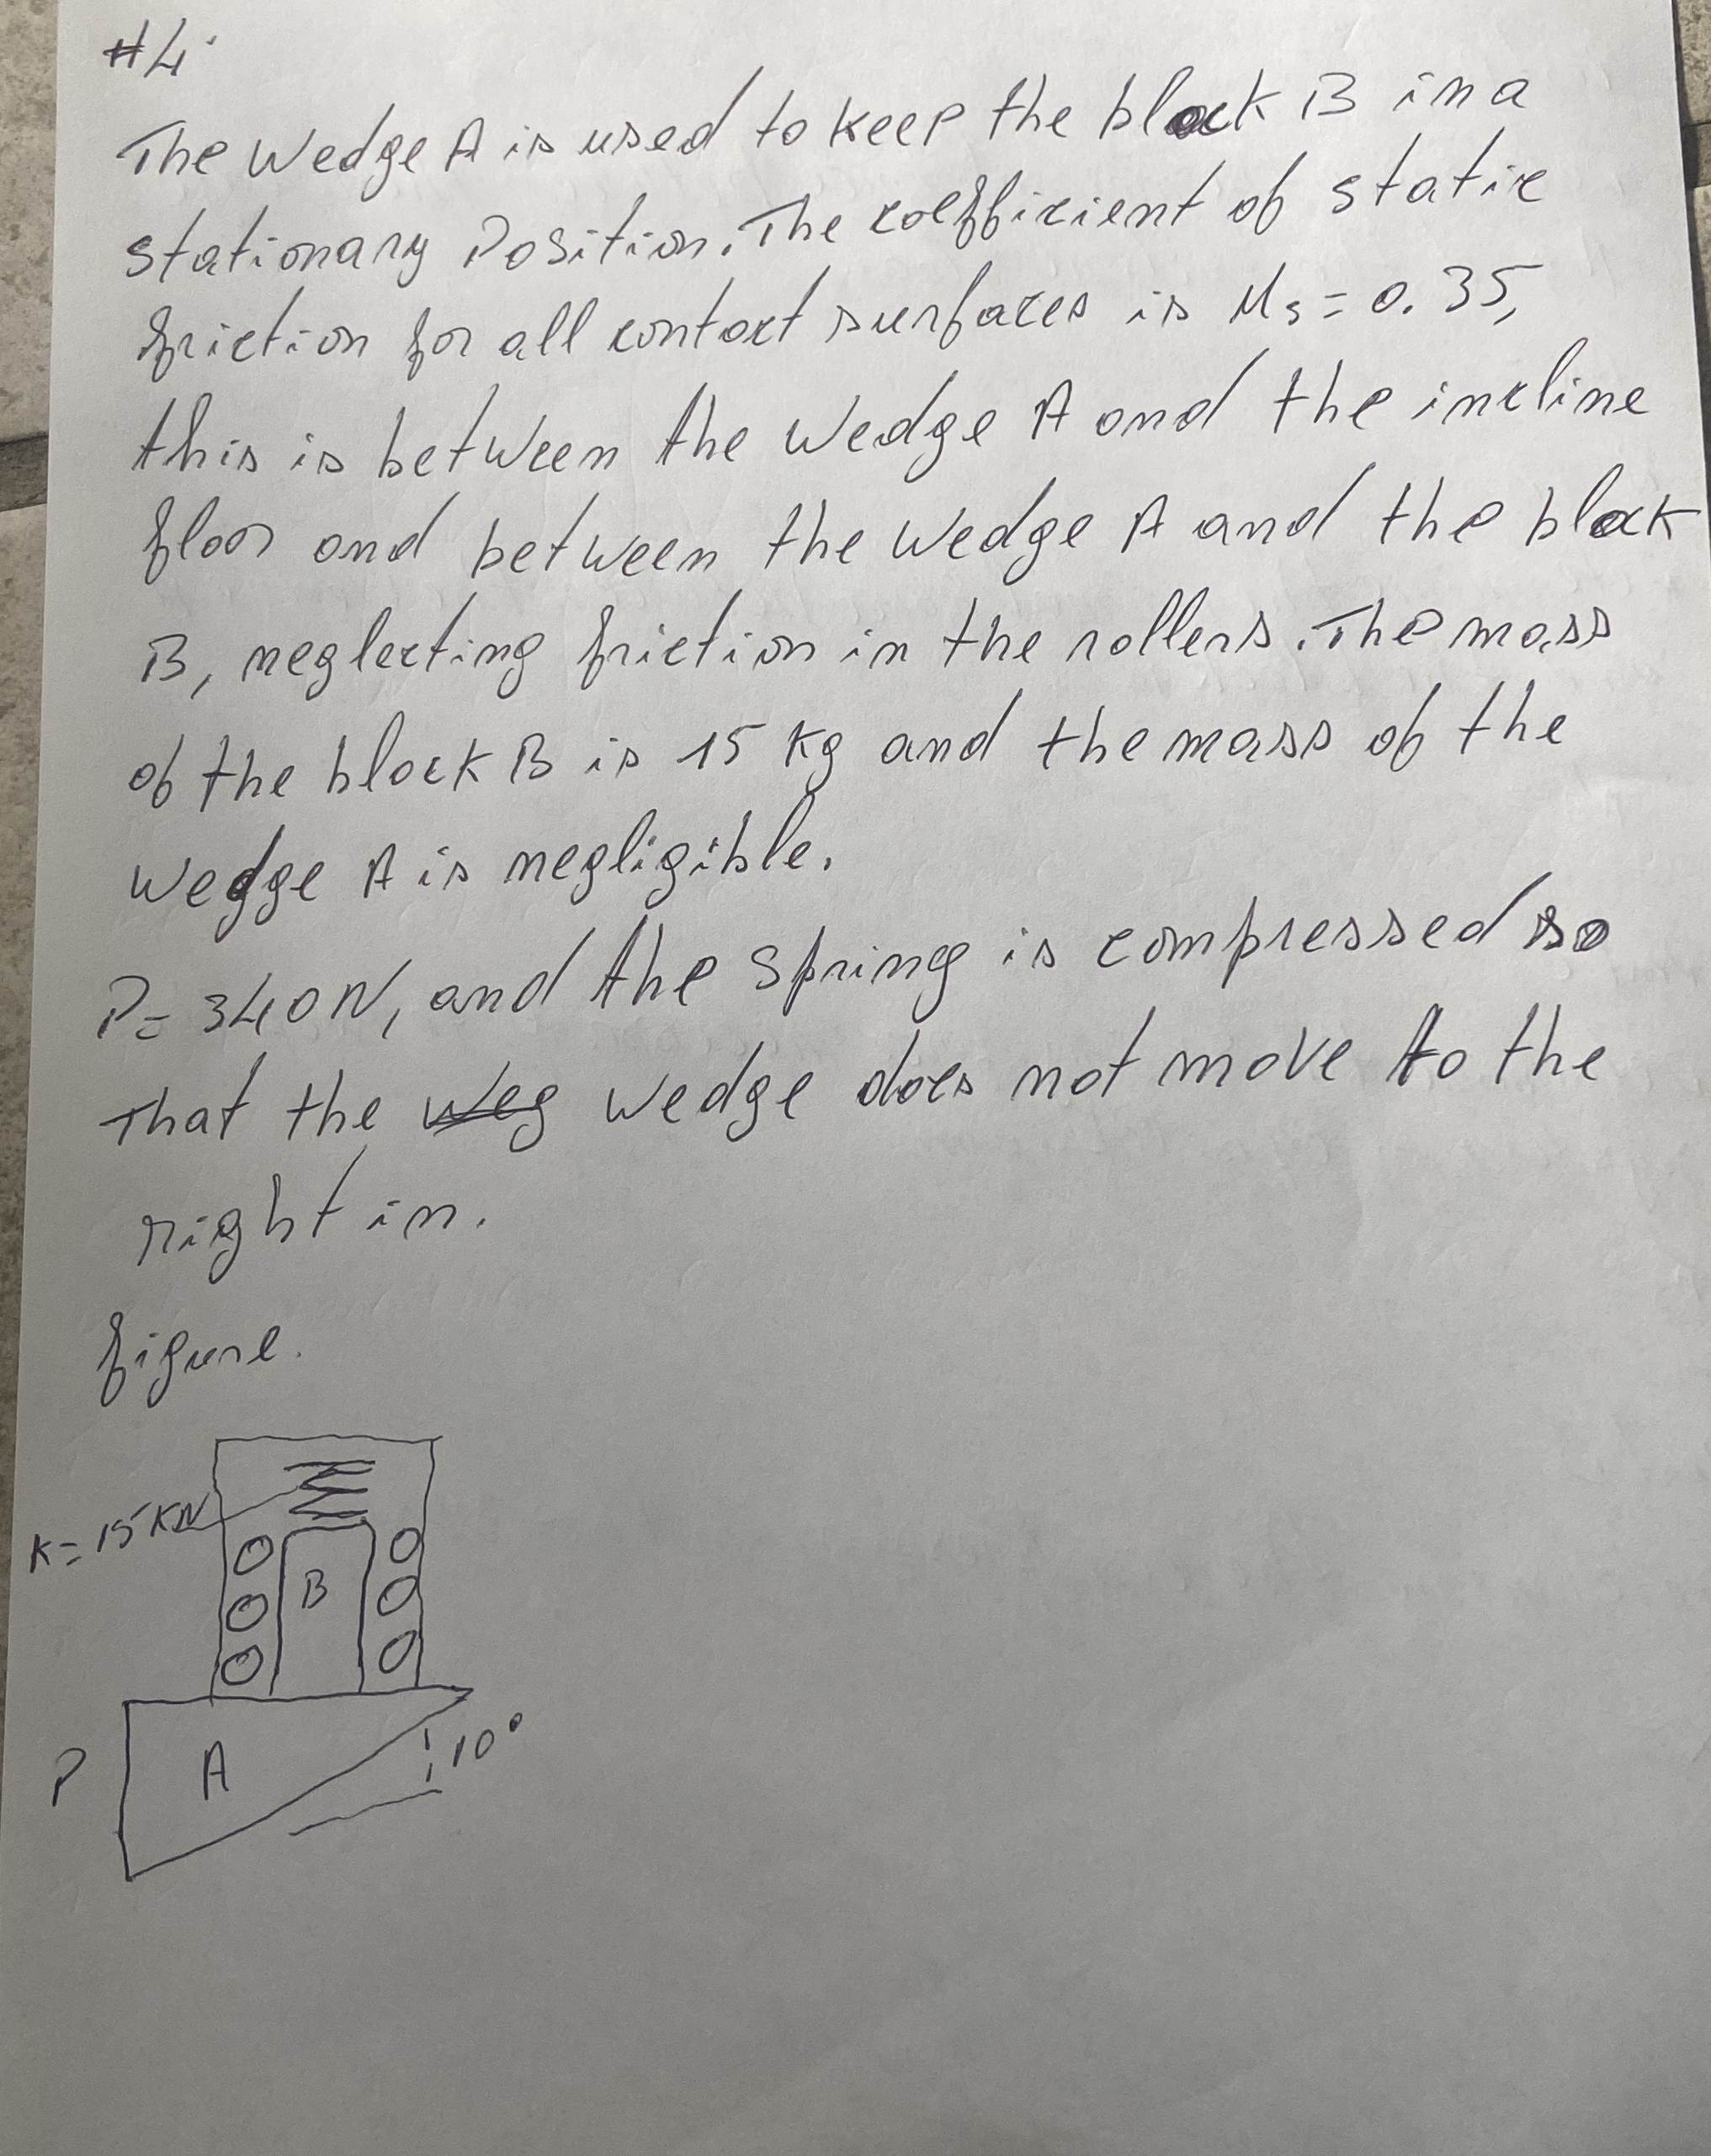 #4.
The wedge A is used to keep the block B in a
stationary position. The coefficient of static
friction for all contact surfaces is Ms = 0.35,
this is between the wedge A and the incline
floor and between the wedge A and the block
B, neglecting friction in the rollers. The mass
of the block B is 15 kg and the mass of the
wedge A is negligible.
P = 340N, and the spring is compressed so
That the wedge does not move to the
right in.
figure.
K = 15 KN
B
A
P
10°